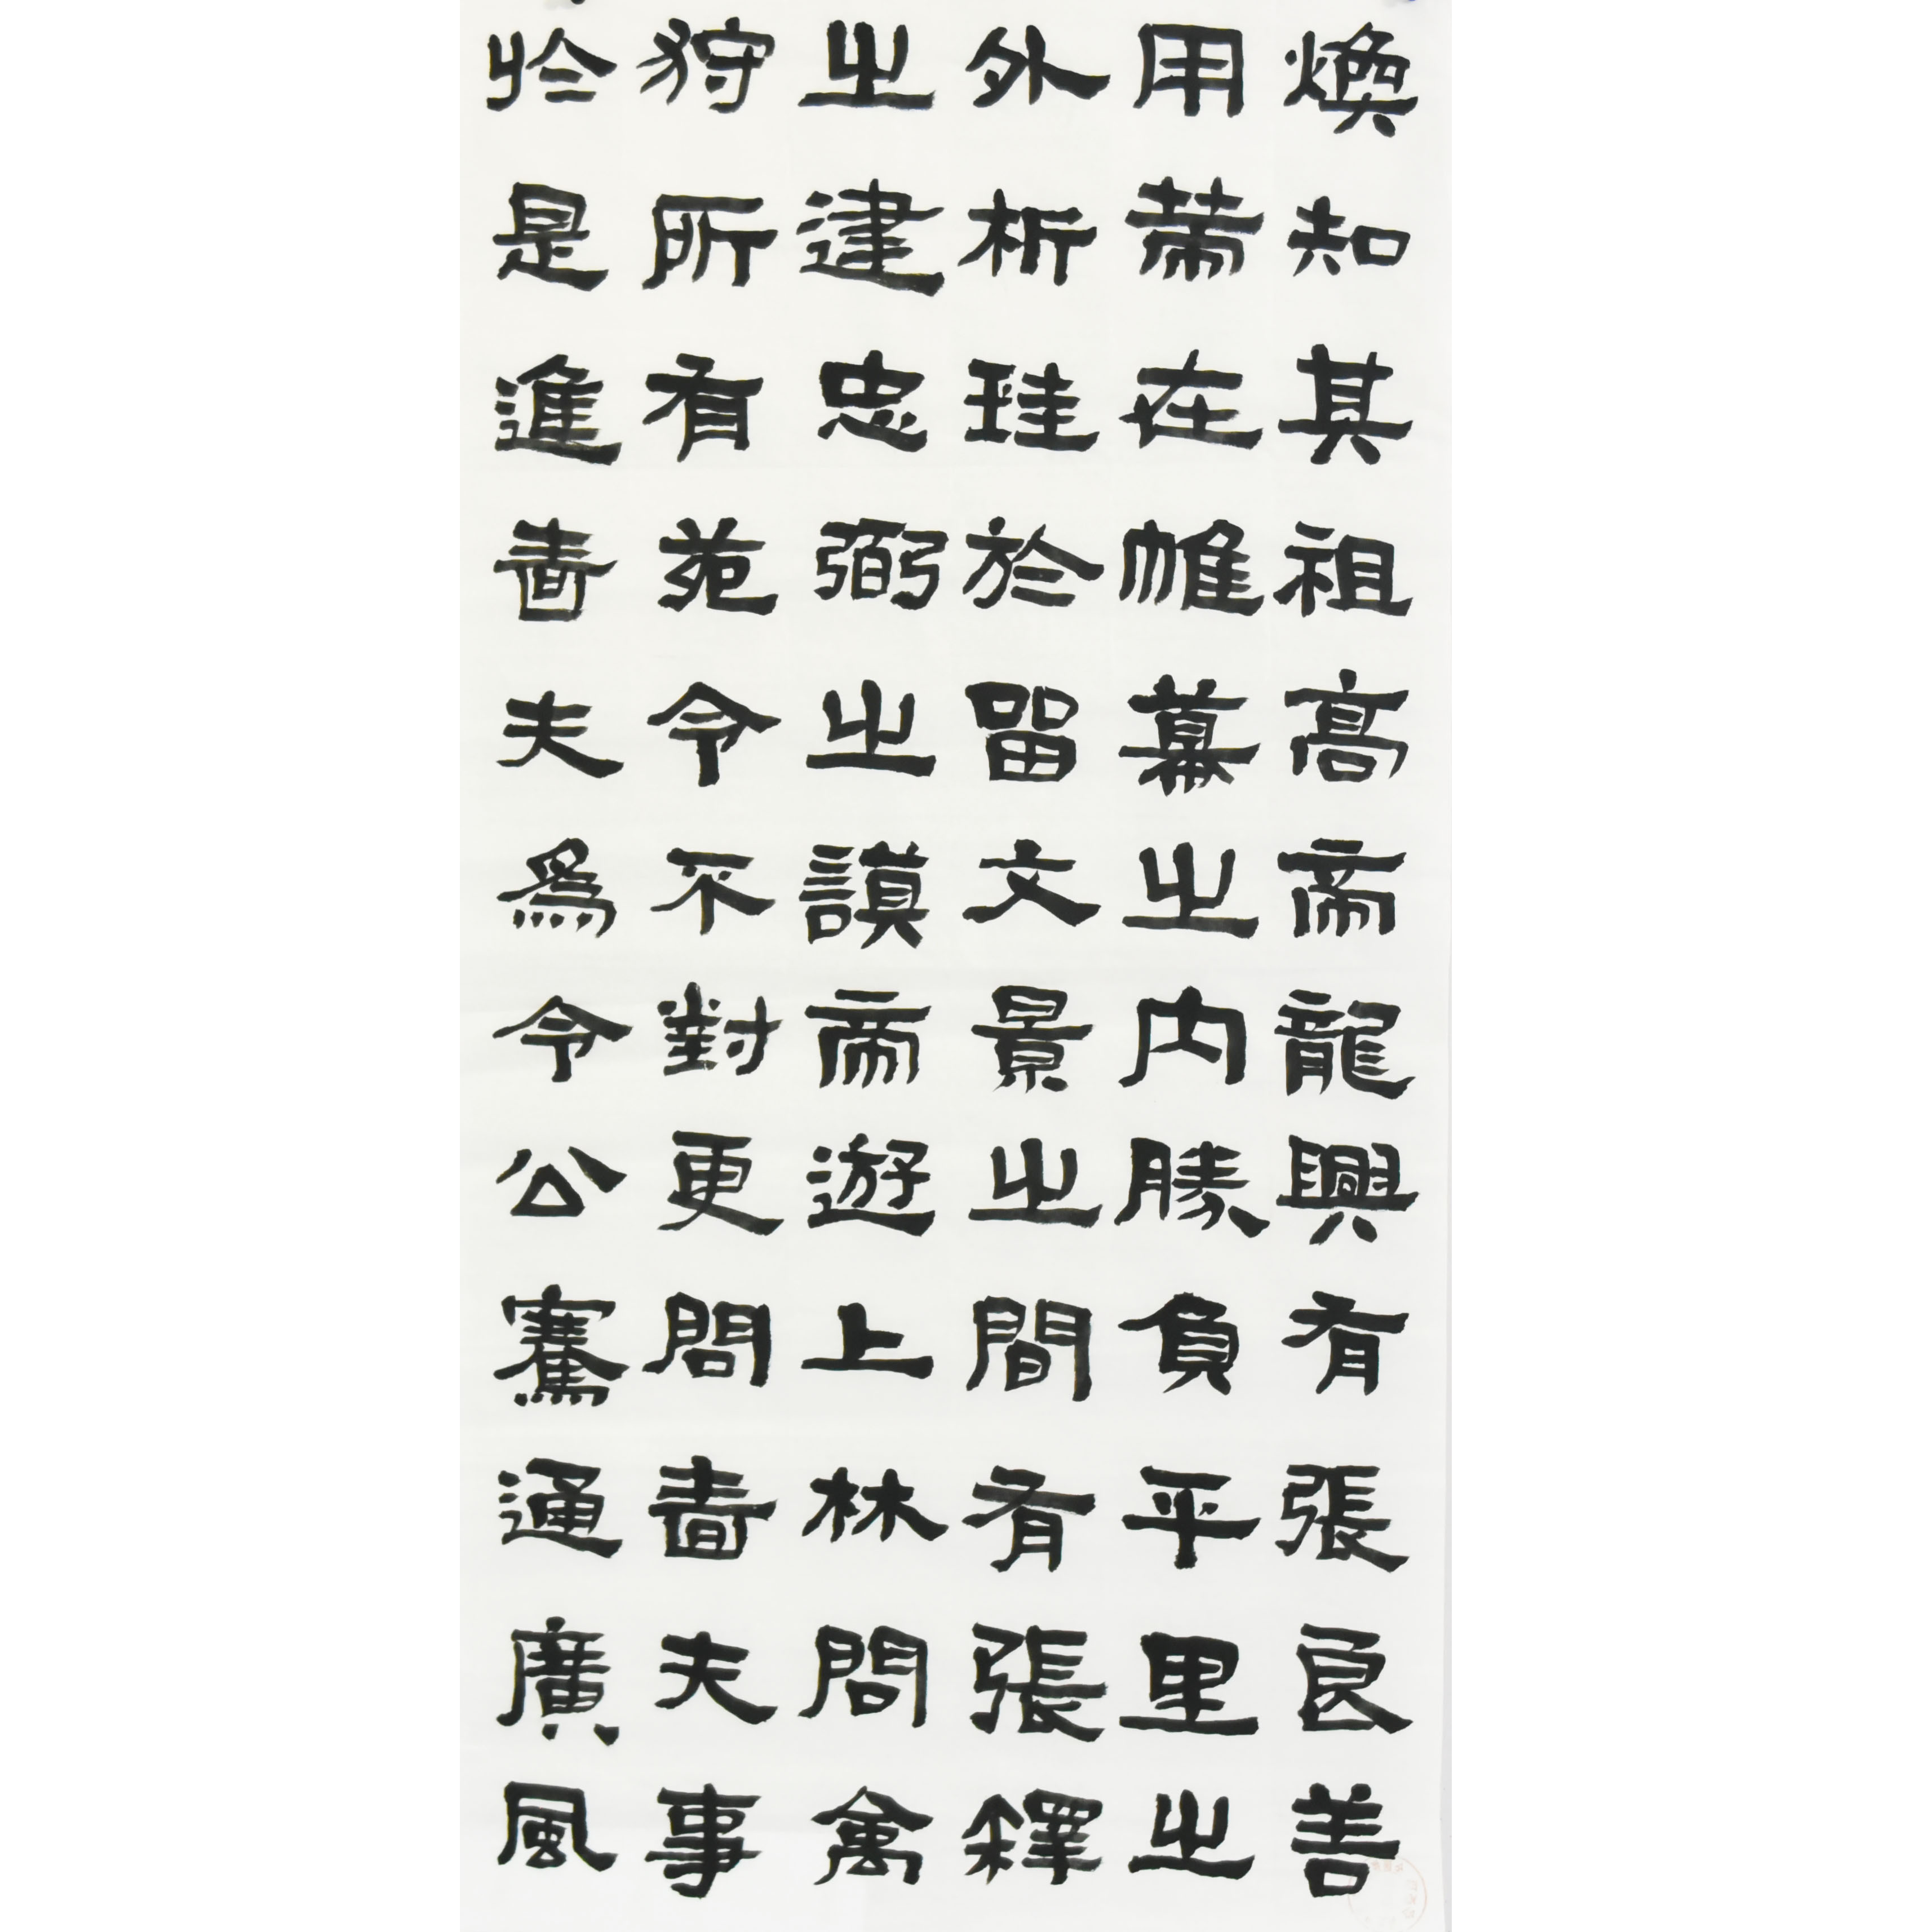 煥知其祖高帝龍興有張良善
用策在帷幕之內勝負平里之
外析珪於留文景之間有張釋
之建忠弼之謨帝遊上林問禽
狩所有苑令不對更問嗇夫事
於是進嗇夫為令公騫通廣風